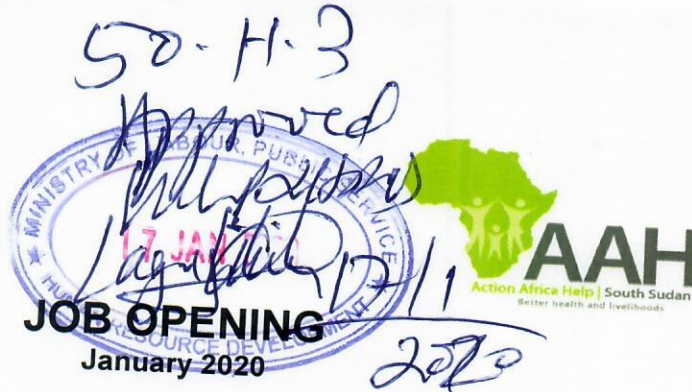 50-H-3
Approved
MINISTRY OF LABOUR, PUBLIC SERVICE
17 JAN
HUMAN RESOURCE DEVELOPMENT
17/1
2020
AAH
Action Africa Help | South Sudan
Better health and livelihoods
JOB OPENING
January 2020